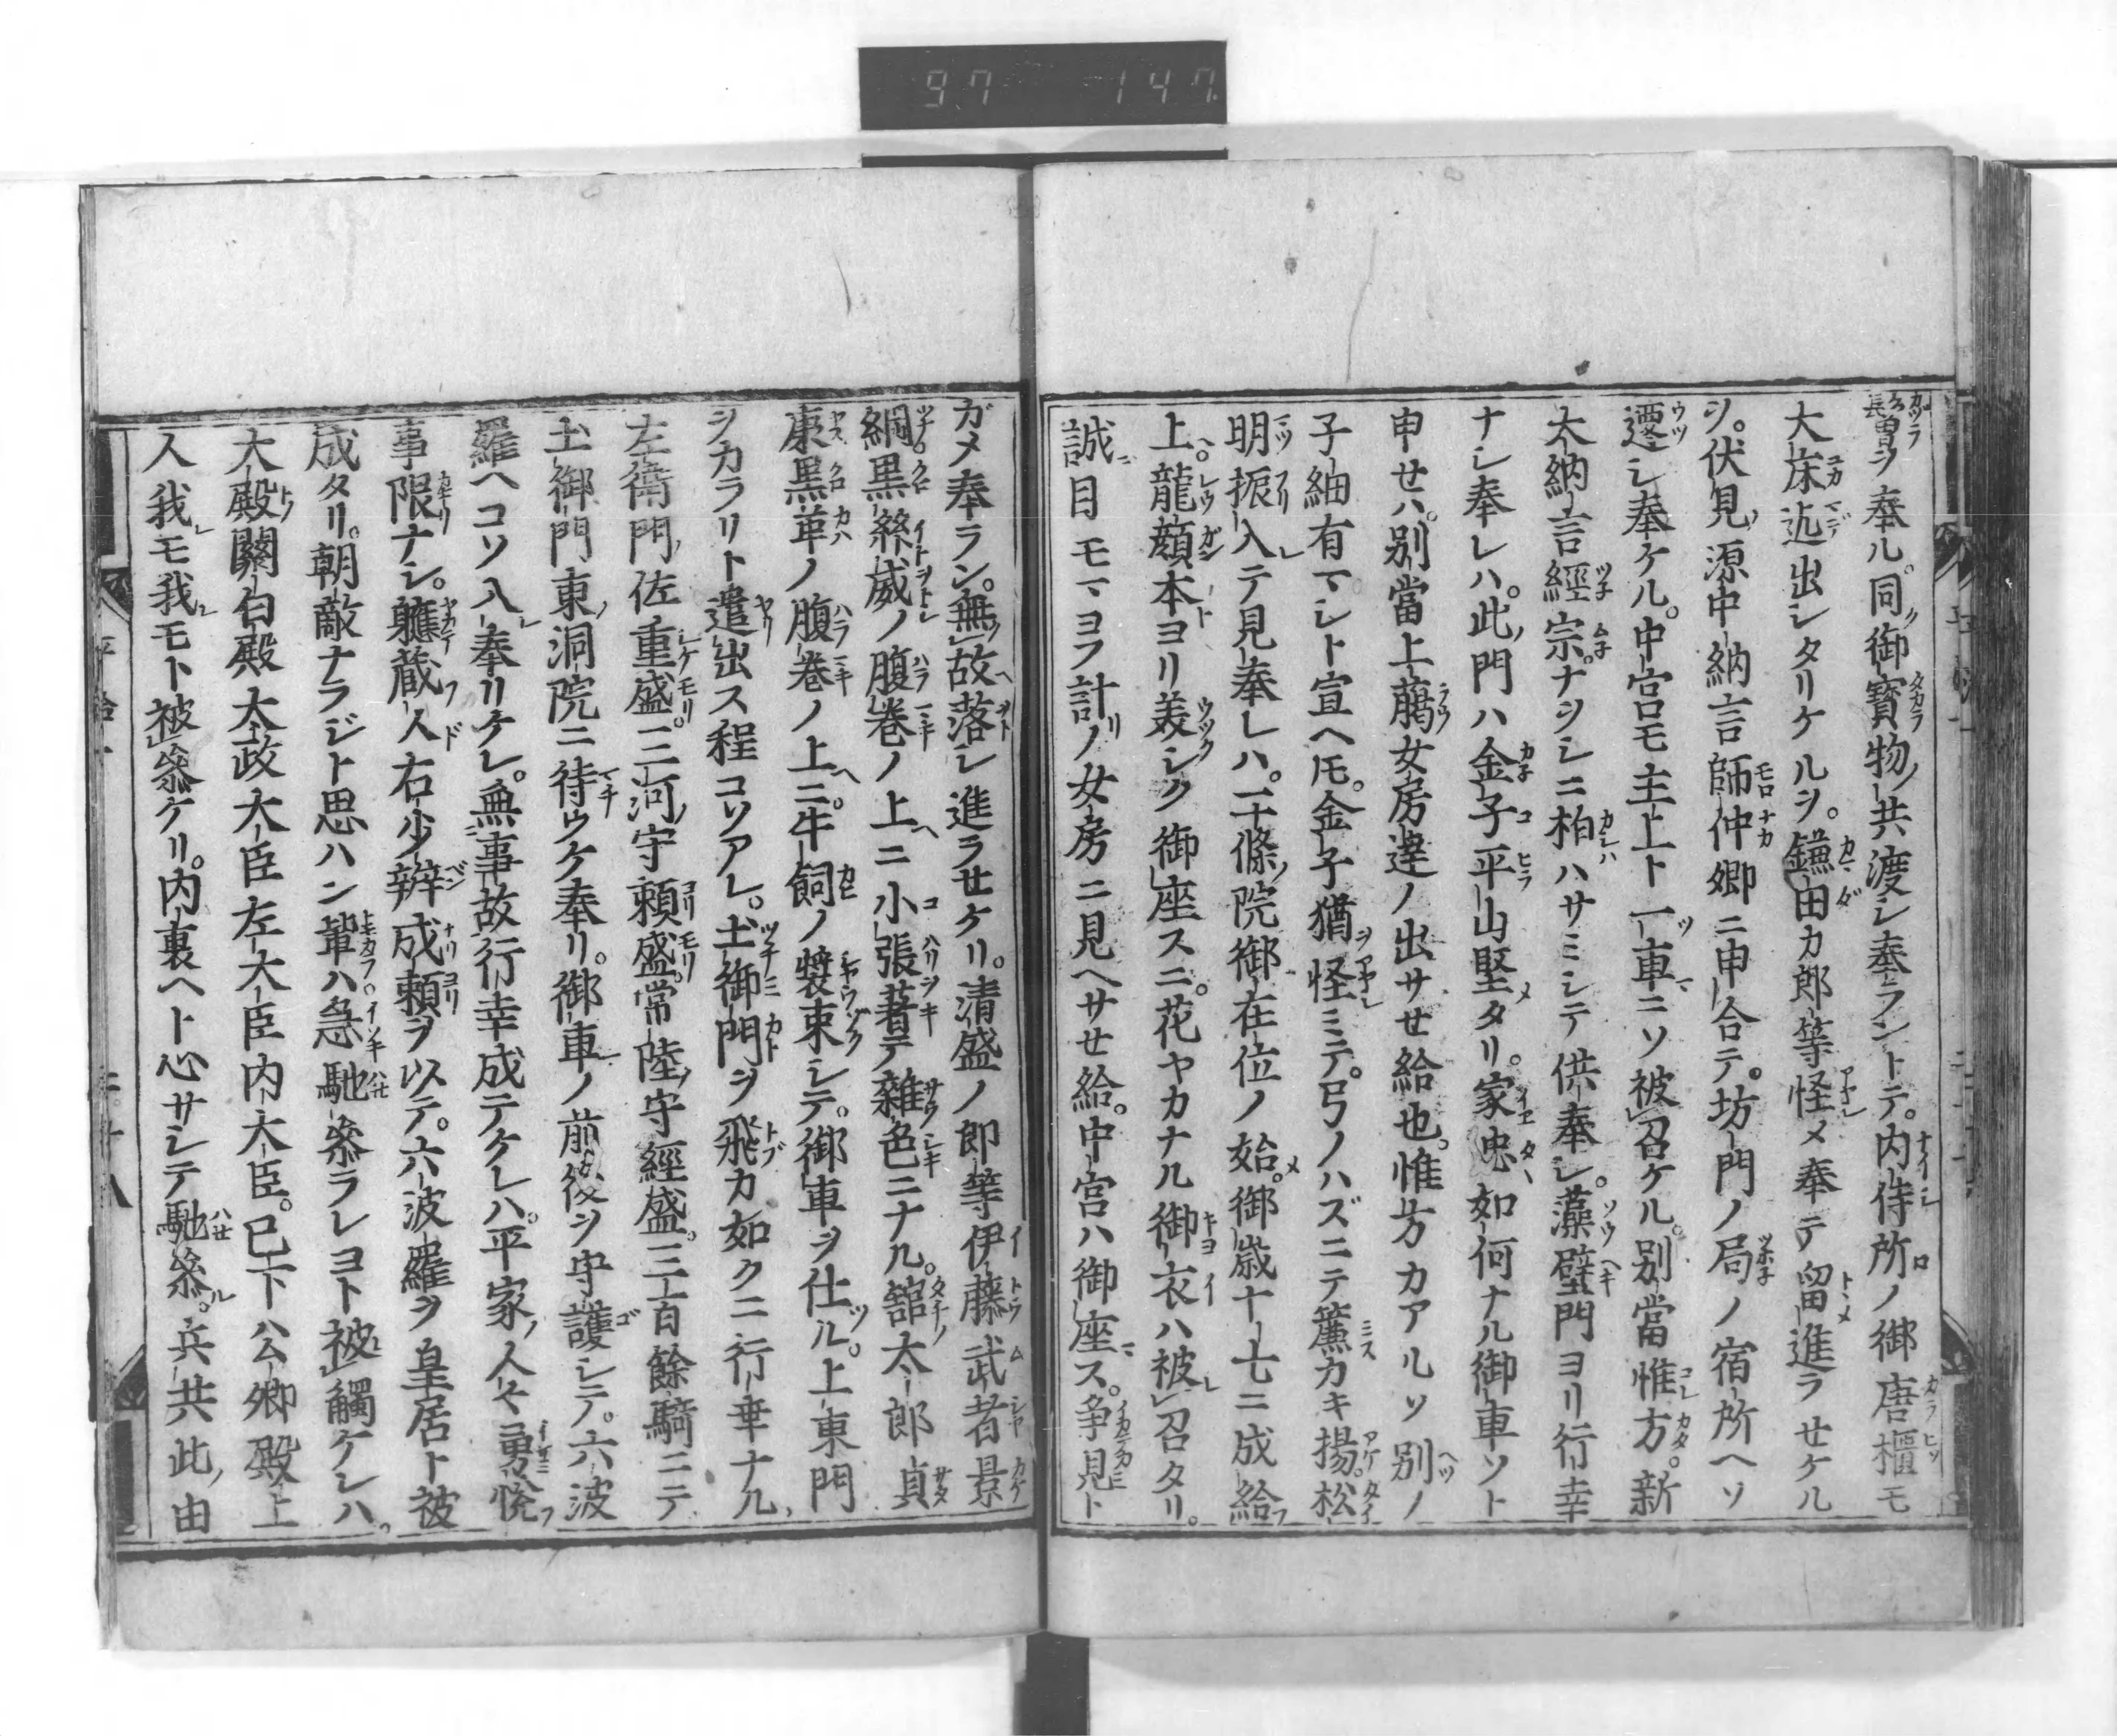 97 147
鬘ヲ奉ル。同御寳物共渡シ奉ラントテ。内侍所ノ御唐櫃モ
大床迄出シタリケルヲ。鎌田カ郎等怪メ奉テ留進ラセケル
ヲ。伏見源中納言師仲卿ニ申合テ。坊門ノ局ノ宿所ヘソ
遷シ奉ケル。中宮モ主上ト一車ニソ被召ケル。別當惟方。新
大納言經宗。ナヲシニ柏ハサミシテ供奉シ。藻壁門ヨリ行幸
ナシ奉レハ。此門ハ金子平山堅タリ。家忠如何ナル御車ソト
申セハ。別當上﨟女房達ノ出サセ給也。惟方カアルソ別ノ
子細有マシト宣ヘ𪜈。金子猶怪ミテ。弓ノハズニテ簾カキ揚。松
明振入テ見奉レハ。二條院御在位ノ始。御歳十七ニ成給
上。龍顔本ヨリ美シク御座スニ。花ヤカナル御衣ハ被召タリ。
誠目モマヨフ計ノ女房ニ見ヘサセ給。中宮ハ御座ス。争見ト
ガメ奉ラン。無故落シ進ラセケリ。清盛ノ郎等伊藤武者景
綱黒絲威ノ腹卷ノ上ニ小張著テ雜色ニナル。舘太郎貞
康黒革ノ腹卷ノ上ニ。牛飼ノ裝束シテ。御車ヲ仕ル。上東門
ヲカラリト遣出ス程コソアレ。土御門ヲ飛カ如クニ行幸ナル
左衛門佐重盛。三河守頼盛。常陸守經盛。三百餘騎ニテ
土御門東洞院ニ待ウケ奉リ。御車ノ前後ヲ守護シテ。六波
羅ヘコソ入奉リケレ。無事故行幸成テケレハ。平家ノ人々勇悦
事限ナシ。軈蔵人右少辨成頼ヲ以テ。六波羅ヲ皇居ト被
成タリ。朝敵ナラジト思ハン輩ハ急馳參ラレヨト被觸ケレハ。
大殿關白殿太政大臣左大臣内大臣。已下ハ公卿殿上
人我モ我モト被參ケリ。内裏ヘト心サシテ馳參ル。兵共此由